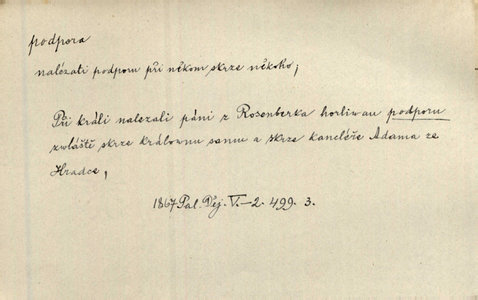 podpora
nalézati podporu při někom skrze někoho;
Při králi nalezali páni z Rosenberka horliwau podporu
zwláště skrze králownu samu a skrze kancléře Adama ze
Hradce,
1867 Pal. Děj. V.–2. 499. 3.